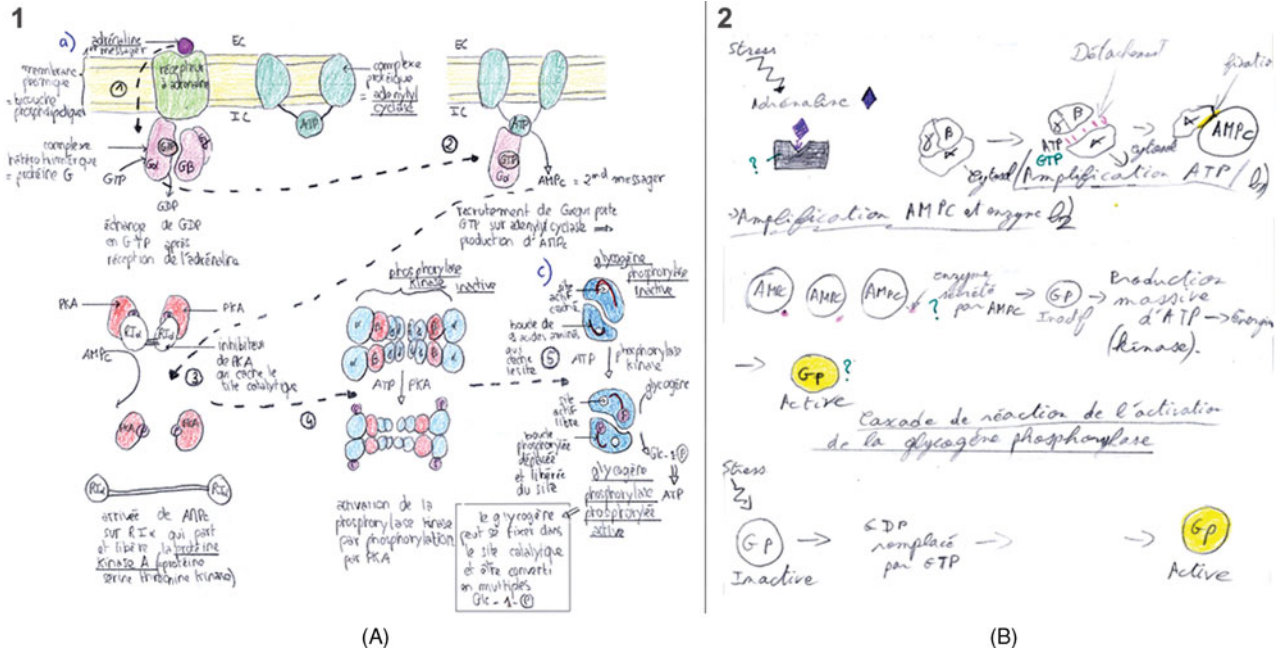 1
a)
adrénaline
1er messager
EC
membrane
plasmique
= bicouche
phospholipidique
récepteur
à adrénaline
①
IC
ATP
complexe
protéique
= adénylyl
cyclase
complexe
hétérotrimérique
= protéine G
GTP
Gα
Gβ
GTP
GDP
échange de GDP
en GTP après
réception de l'adrénaline
EC
IC
ATP
②
GTP
Gα
AMPc = 2nd messager
recrutement de
GTP sur adenylyl cyclase ⇒
production d'AMPc
PKA
PKA
RIα
RIα
AMPc
inhibiteur
de PKA
qui cache le
site catalytique
③
PKA
PKA
RIα
RIα
arrivée de AMPc
sur RIα qui part
et libère la protéine
kinase A (protéine
serine thréonine kinase)
phosphorylase
kinase inactive
α β β α
α β β α
ATP PKA
④
activation de la
phosphorylase kinase
par phosphorylation
par PKA
c)
glycogène
phosphorylase
inactive
site
actif
caché
boucle de
acides aminés
qui
cache
le site
⑤
ATP
phosphorylase
kinase
glycogène
site
actif
libre
boucle
phosphorylée
déplacée
et libérée
du site
Glc-1-P
ATP
glycogène
phosphorylase
phosphorylée
active
le glycogène
peut se fixer dans
le site catalytique
et être converti
en multiples
Glc-1-P
(A)
2
Stress
Adrénaline
?
γ β
α
Cytosol
Détachement
γ β
α
ATP
GTP
cytosol
fixation
α
AMPc
(Amplification ATP/
⇒ Amplification AMPC et enzyme
AMPC
AMPC
AMPC
?
enzyme
sécrété
par AMPC
GP
Inactif
Production
massive
d'ATP → Energie
(kinase).
GP ?
Active
Cascade de réaction de l'activation
de la glycogène phosphorylase
Stress
GP
Inactive
GDP
remplacé
par GTP
GP
Active
(B)